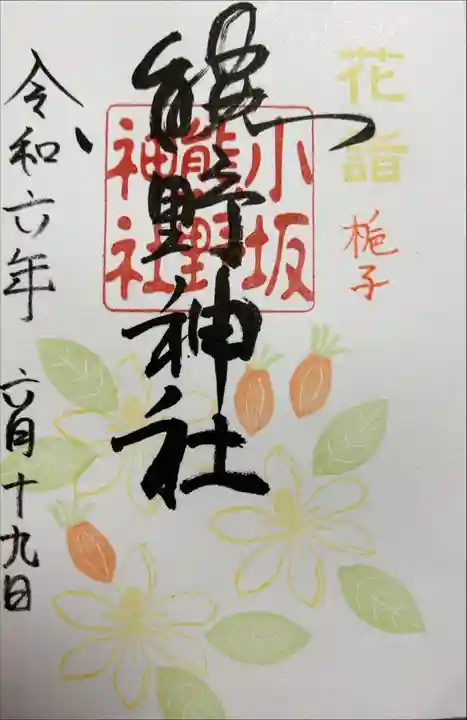 花詣
梔子
小坂
熊野
神社
熊野神社
令和六年 六月十九日